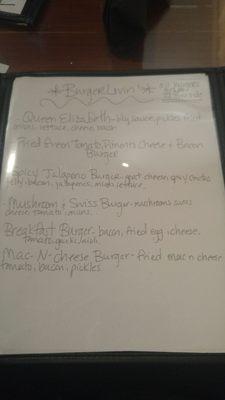 *Burger Livin'*
Queen Elizabeth - bbq sauce, pickles, fried
onions, lettuce, cheese, bacon
Fried Green Tomato, Pimento Cheese & Bacon
Burger
Spicy Jalapeno Burger - goat cheese, spicy
jelly, bacon, jalapenos, lettuce
- Mushroom & Swiss Burger - mushrooms, swiss
cheese, tomato, onions.
Breakfast Burger - bacon, fried egg, cheese,
tomato
Mac-N-Cheese Burger - fried mac n cheese
tomato, bacon, pickles